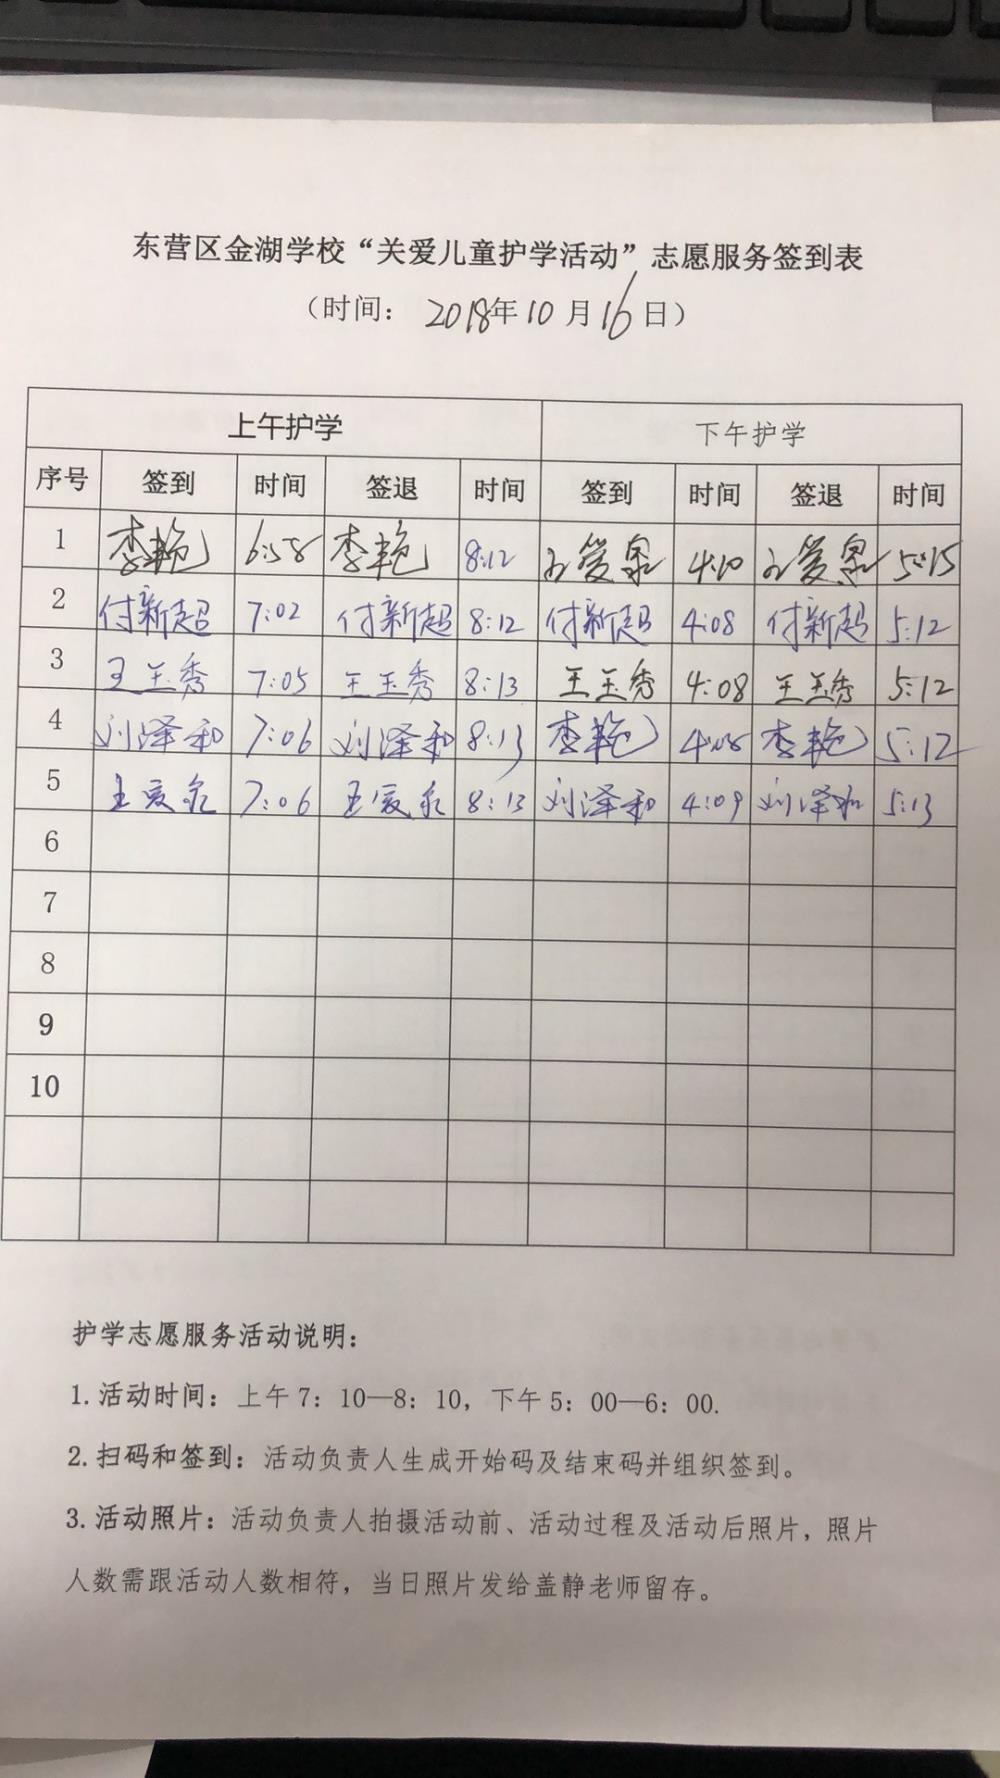 东营区金湖学校“关爱儿童护学活动”志愿服务签到表
（时间： 2018年10月16日）
上午护学 下午护学
序号 签到 时间 签退 时间 签到 时间 签退 时间
1 李艳 6:58 李艳 8:12 王爱泉 4:10 王爱泉 5:15
2 付新超 7:02 付新超 8:12 付新超 4:08 付新超 5:12
3 王玉秀 7:05 王玉秀 8:13 王玉秀 4:08 王玉秀 5:12
4 刘泽和 7:06 刘泽和 8:13 李艳 4:08 李艳 5:12
5 王爱泉 7:06 王爱泉 8:13 刘泽和 4:09 刘泽和 5:13
6
7
8
9
10
护学志愿服务活动说明：
1.活动时间：上午7：10—8：10，下午5：00—6：00.
2.扫码和签到：活动负责人生成开始码及结束码并组织签到。
3.活动照片：活动负责人拍摄活动前、活动过程及活动后照片，照片
人数需跟活动人数相符，当日照片发给盖静老师留存。